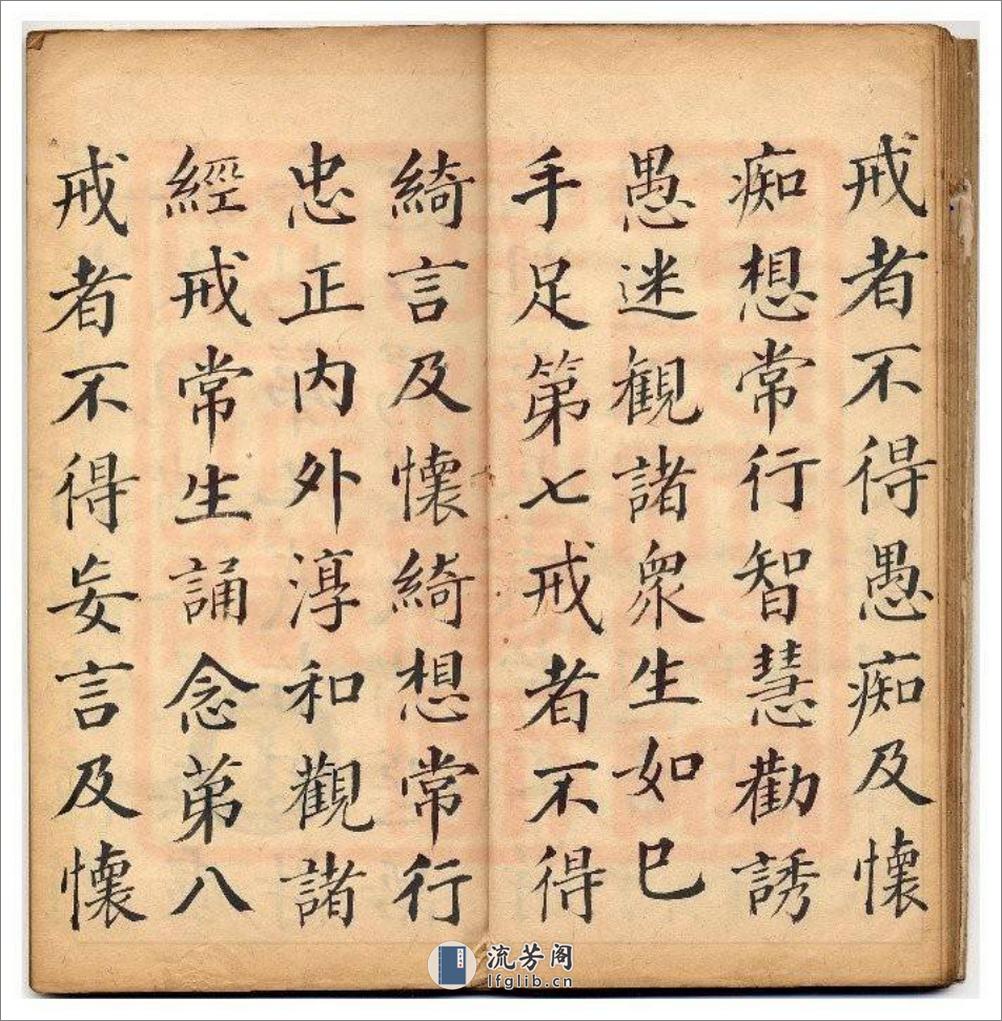 戒者不得愚痴及懷
痴想常行智慧勸誘
愚迷觀諸衆生如巳
手足第七戒者不得
綺言及懷綺想常行
忠正内外淳和觀諸
經戒常生誦念苐八
戒者不得妄言及懷
流芳阁
lfglib.cn